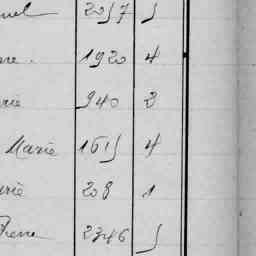 nel 2057 5
re. 1920 4
rie 940 2
Marie 1615 4
rie 208 1
Pierre 2346 5